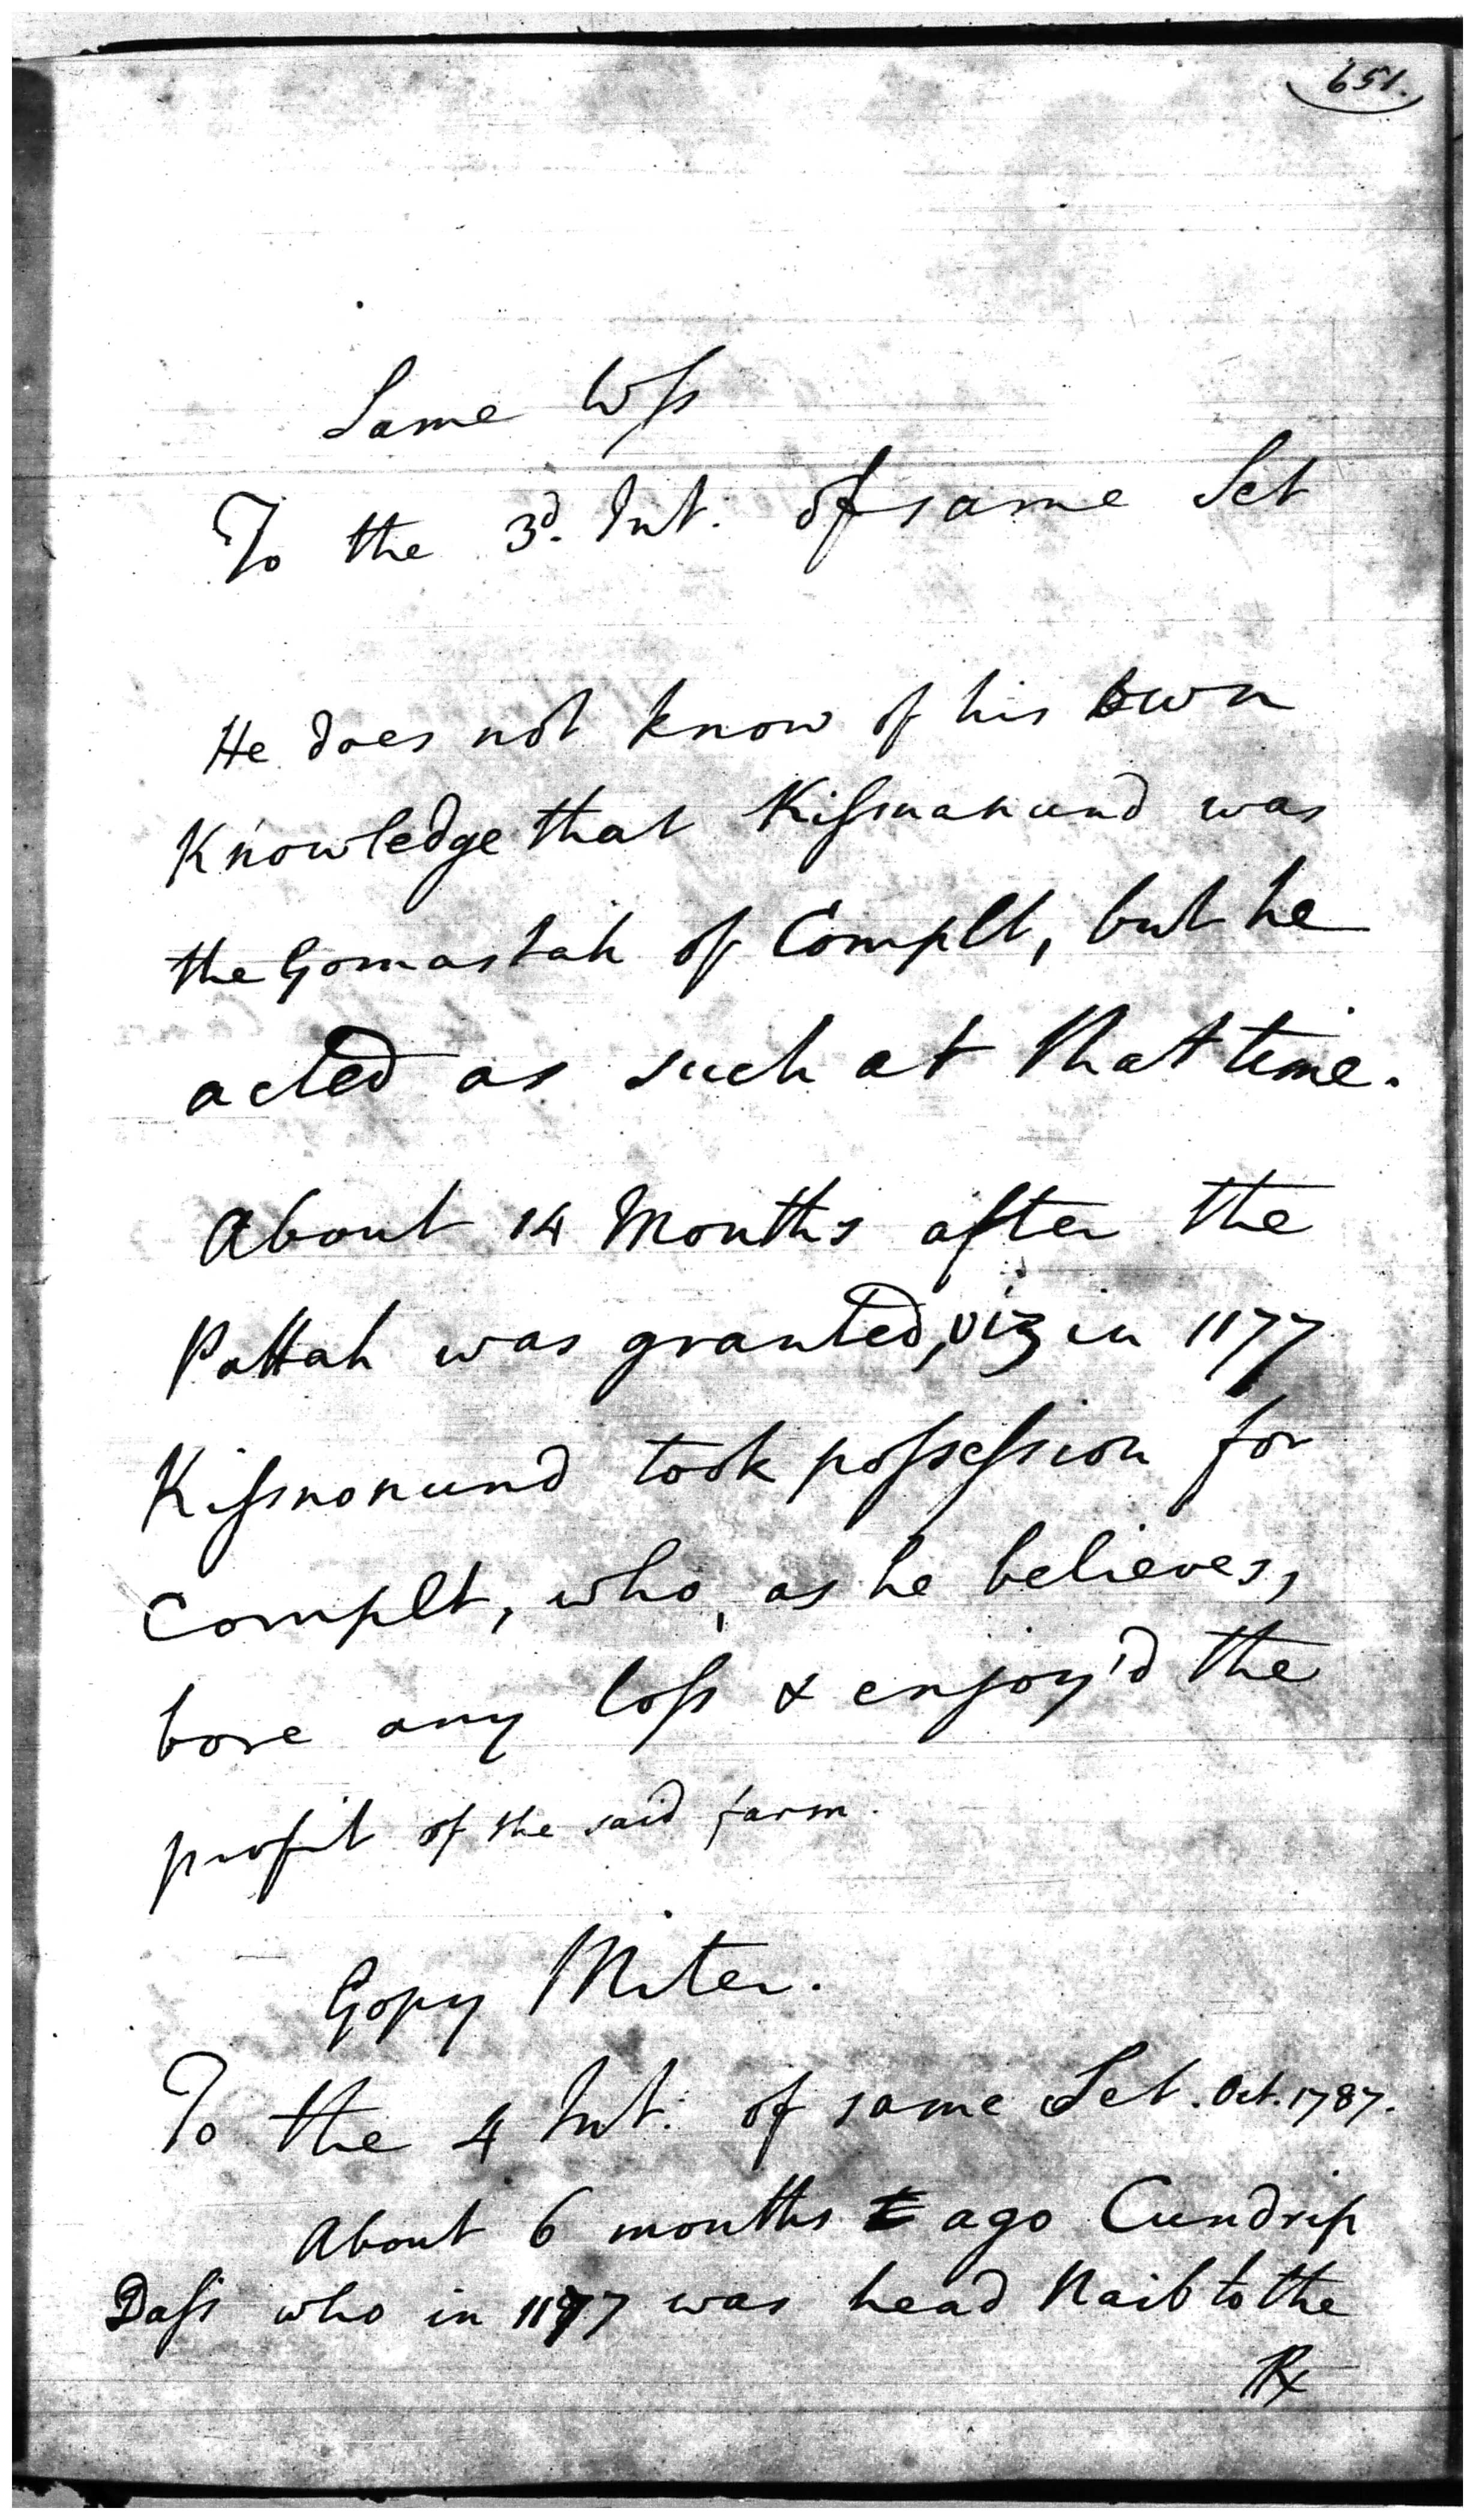 651.
Same Wss
To the 3d. Int. of same Set
He does not know of his own
Knowledge that Kissnanund was
the Gomastah of Complt, but he
acted as such at that time.
About 14 Months after the
Pottah was granted, viz in 1177
Kissnonund took possession for
Complt, who, as he believes,
bore any loss & enjoy'd the
profit of the said farm.
Gopy Miter.
To the 4 Int. of same Set. Oct. 1787.
About 6 months ago Cundrip
Dass who in 1177 was head Naib to the